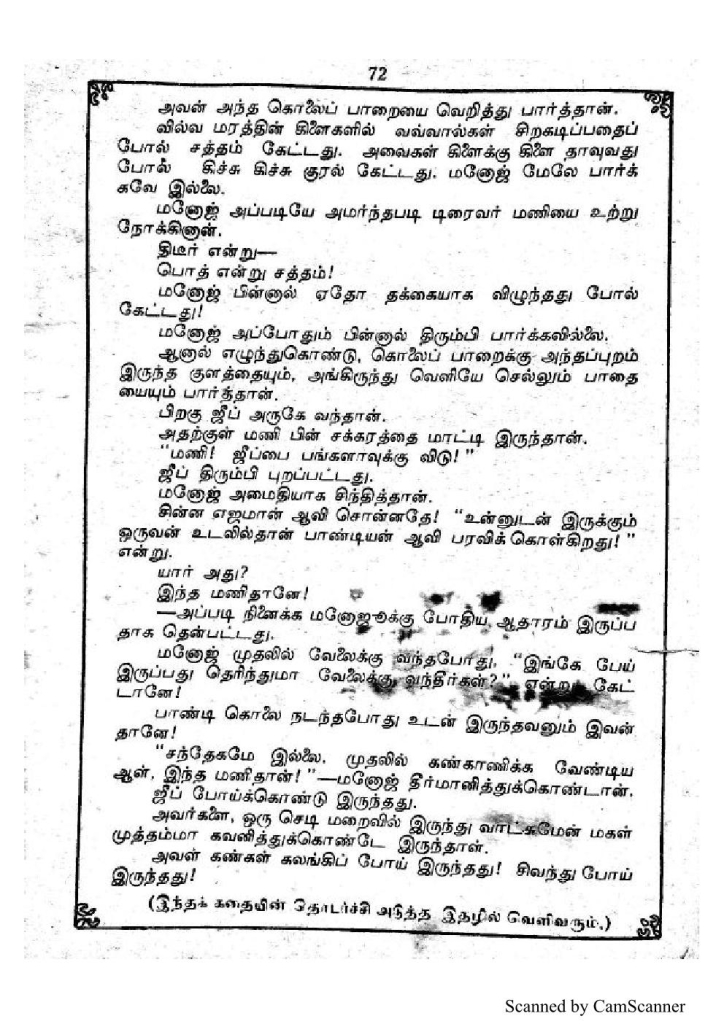 72
அவன் அந்த கொலைப் பாறையை வெறித்து பார்த்தான்.
வில்வ மரத்தின் கிளைகளில் வவ்வால்கள் சிறகடிப்பதைப்
போல் சத்தம் கேட்டது. அவைகள் கிளைக்கு கிளை தாவுவது
போல் கிச்சு கிச்சு குரல் கேட்டது. மனோஜ் மேலே பார்க்
கவே இல்லை.
மனோஜ் அப்படியே அமர்ந்தபடி டிரைவர் மணியை உற்று
நோக்கினான்.
திடீர் என்று—
பொத் என்று சத்தம்!
மனோஜ் பின்னால் ஏதோ தக்கையாக விழுந்தது போல்
கேட்டது!
மனோஜ் அப்போதும் பின்னால் திரும்பி பார்க்கவில்லை.
ஆனால் எழுந்துகொண்டு, கொலைப் பாறைக்கு அந்தப்புறம்
இருந்த குளத்தையும், அங்கிருந்து வெளியே செல்லும் பாதை
யையும் பார்த்தான்.
பிறகு ஜீப் அருகே வந்தான்.
அதற்குள் மணி பின் சக்கரத்தை மாட்டி இருந்தான்.
“மணி! ஜீப்பை பங்களாவுக்கு விடு!”
ஜீப் திரும்பி புறப்பட்டது.
மனோஜ் அமைதியாக சிந்தித்தான்.
சின்ன எஜமான் ஆவி சொன்னதே! “உன்னுடன் இருக்கும்
ஒருவன் உடலில்தான் பாண்டியன் ஆவி பரவிக்கொள்கிறது!”
என்று.
யார் அது?
இந்த மணிதானே!
—அப்படி நினைக்க மனோஜுக்கு போதிய ஆதாரம் இருப்ப
தாக தென்பட்டது.
மனோஜ் முதலில் வேலைக்கு வந்தபோது, “இங்கே பேய்
இருப்பது தெரிந்துமா வேலைக்கு வந்தீர்கள்?” என்று கேட்
டானே!
பாண்டி கொலை நடந்தபோது உடன் இருந்தவனும் இவன்
தானே!
“சந்தேகமே இல்லை. முதலில் கண்காணிக்க வேண்டிய
ஆள், இந்த மணிதான்!”—மனோஜ் தீர்மானித்துக்கொண்டான்.
ஜீப் போய்க்கொண்டு இருந்தது.
அவர்களை, ஒரு செடி மறைவில் இருந்து வாட்சுமேன் மகள்
முத்தம்மா கவனித்துக்கொண்டே இருந்தாள்.
அவள் கண்கள் கலங்கிப் போய் இருந்தது! சிவந்து போய்
இருந்தது!
(இந்தக் கதையின் தொடர்ச்சி அடுத்த இதழில் வெளிவரும்.)
Scanned by CamScanner